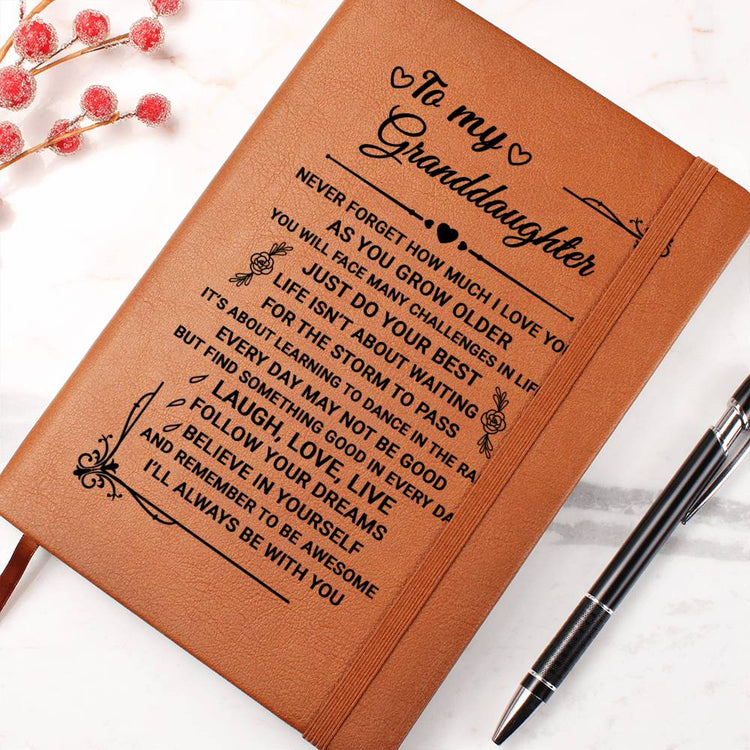 To my
Granddaughter
NEVER FORGET HOW MUCH I LOVE YO
AS YOU GROW OLDER
YOU WILL FACE MANY CHALLENGES IN LIF
JUST DO YOUR BEST
LIFE ISN'T ABOUT WAITING
FOR THE STORM TO PASS
IT'S ABOUT LEARNING TO DANCE IN THE RA
EVERY DAY MAY NOT BE GOOD
BUT FIND SOMETHING GOOD IN EVERY DA
LAUGH, LOVE, LIVE
FOLLOW YOUR DREAMS
BELIEVE IN YOURSELF
AND REMEMBER TO BE AWESOME
I'LL ALWAYS BE WITH YOU